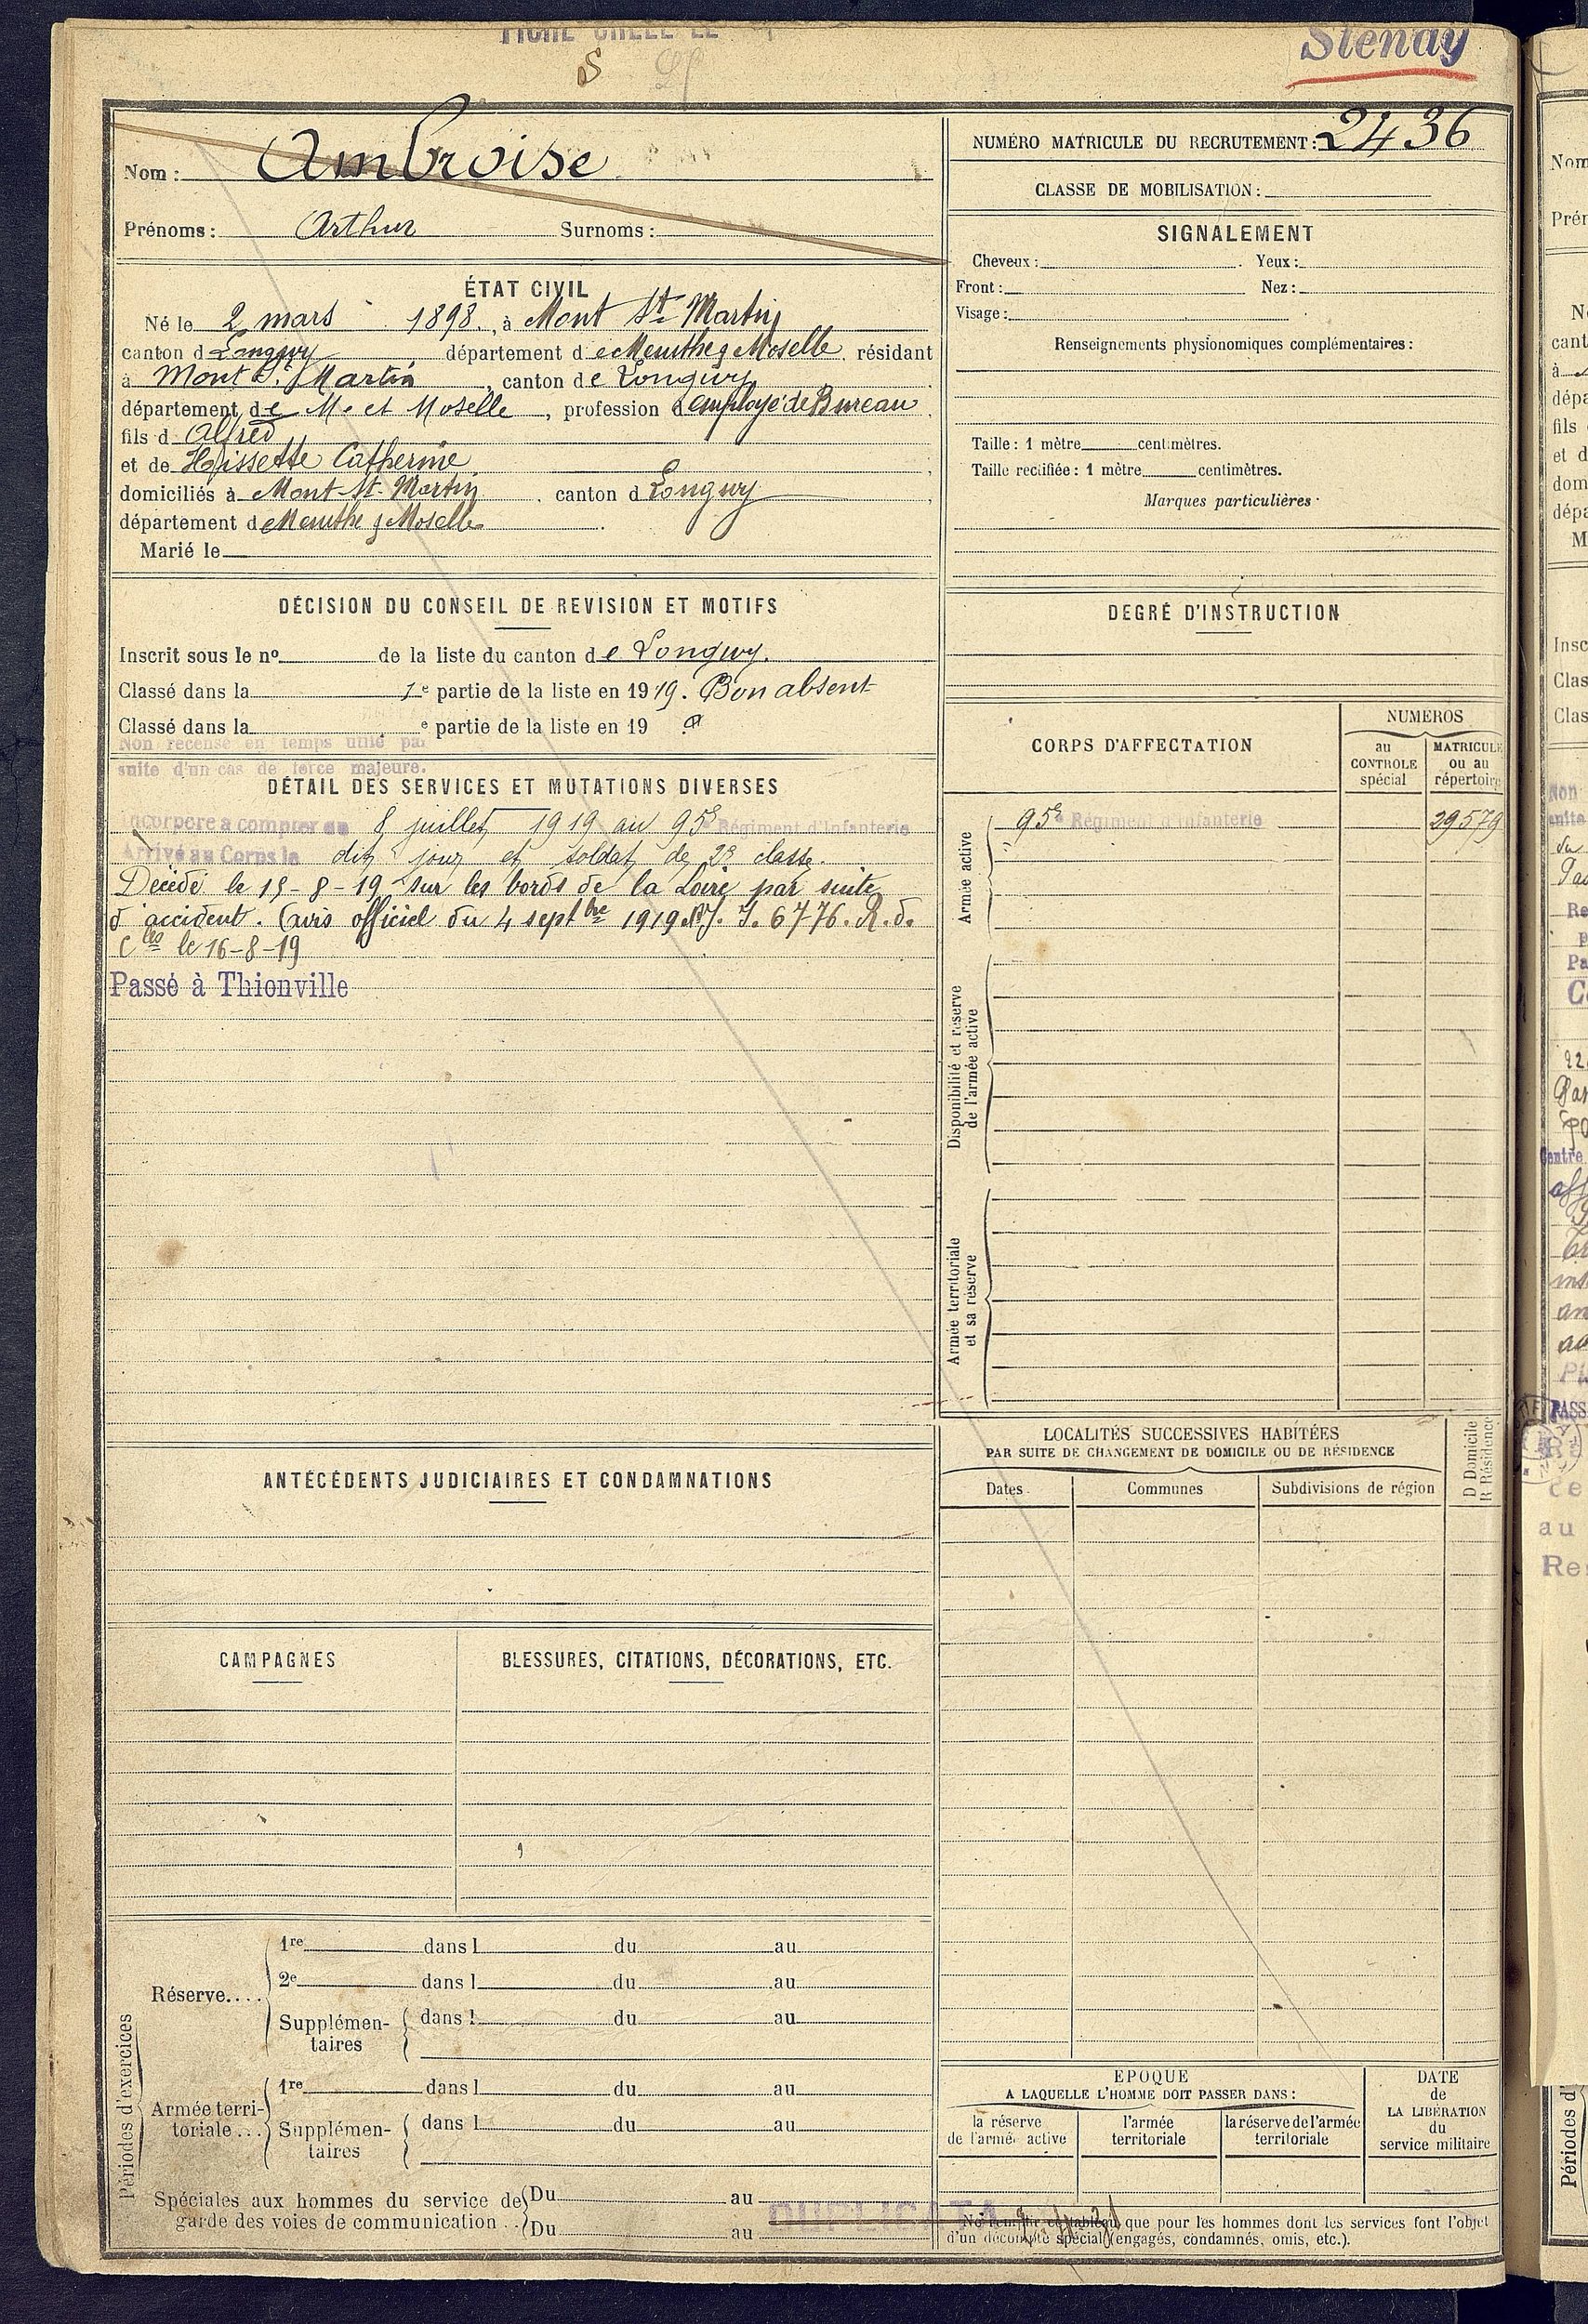 FICHE CRÉÉE LE
Stenay
S
Nom : Ambroise
Prénoms : Arthur Surnoms :
ÉTAT CIVIL
Né le 2 mars 1898, à Mont St Martin
canton de Longwy département de Meurthe & Moselle, résidant
à Mont St Martin, canton de Longwy
département de M. et Moselle, profession d'employé de Bureau
fils d Alfred
et de Hissette Catherine
domiciliés à Mont St Martin, canton d Longwy
département de Meurthe & Moselle
Marié le
DÉCISION DU CONSEIL DE REVISION ET MOTIFS
Inscrit sous le no de la liste du canton de Longwy.
Classé dans la 1e partie de la liste en 1919. Bon absent
Classé dans la e partie de la liste en 19
Non recensé en temps utile par
suite d'un cas de force majeure.
DÉTAIL DES SERVICES ET MUTATIONS DIVERSES
Incorporé à compter du 8 juillet 1919 au 95e Régiment d'Infanterie
Arrivé au Corps le dit jour et soldat de 2e classe.
Décédé le 15-8-19 sur les bords de la Loire par suite
d'accident. (avis officiel du 4 septbre 1919 6776. R. d.
Clls le 16-8-19
Passé à Thionville
ANTÉCÉDENTS JUDICIAIRES ET CONDAMNATIONS
CAMPAGNES
BLESSURES, CITATIONS, DÉCORATIONS, ETC.
Périodes d'exercices
Réserve....
1re dans l du au
2e dans l du au
Supplémen- dans l du au
taires
Armée terri-
toriale...
1re dans l du au
Supplémen- dans l du au
taires
Spéciales aux hommes du service de Du au
garde des voies de communication .. Du au
NUMÉRO MATRICULE DU RECRUTEMENT : 2436
CLASSE DE MOBILISATION :
SIGNALEMENT
Cheveux : Yeux :
Front : Nez :
Visage :
Renseignements physionomiques complémentaires :
Taille : 1 mètre centimètres.
Taille rectifiée : 1 mètre centimètres.
Marques particulières :
DEGRÉ D'INSTRUCTION
CORPS D'AFFECTATION
NUMÉROS
au CONTROLE spécial
MATRICULE ou au répertoire
Armée active
95e Régiment d'Infanterie 29579
Disponibilité et réserve
de l'armée active
Armée territoriale
et sa réserve
LOCALITÉS SUCCESSIVES HABITÉES
PAR SUITE DE CHANGEMENT DE DOMICILE OU DE RÉSIDENCE
D Domicile
R Résidence
Dates Communes Subdivisions de région
EPOQUE
A LAQUELLE L'HOMME DOIT PASSER DANS :
la réserve de l'armée active
l'armée territoriale
la réserve de l'armée territoriale
DATE
de
LA LIBÉRATION
du
service militaire
DUPLICATA
que pour les hommes dont les services font l'objet
d'un décompte spécial (engagés, condamnés, omis, etc.).